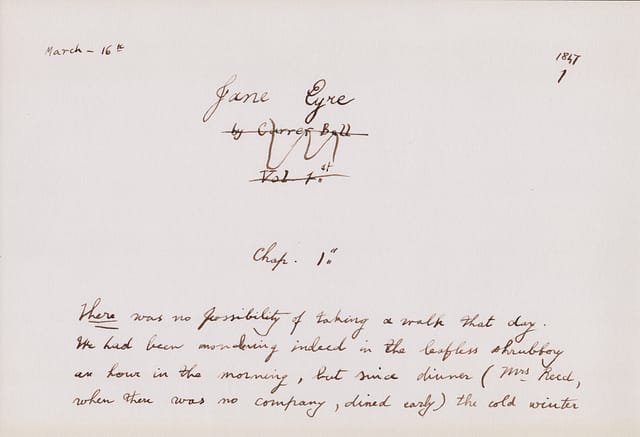 March – 16th
1847
1
Jane Eyre
by Currer Bell
Vol 1.st
Chap. 1st
There was no possibility of taking a walk that day.
We had been wandering indeed in the leafless shrubbery
an hour in the morning, but since dinner (Mrs Reed,
when there was no company, dined early) the cold winter